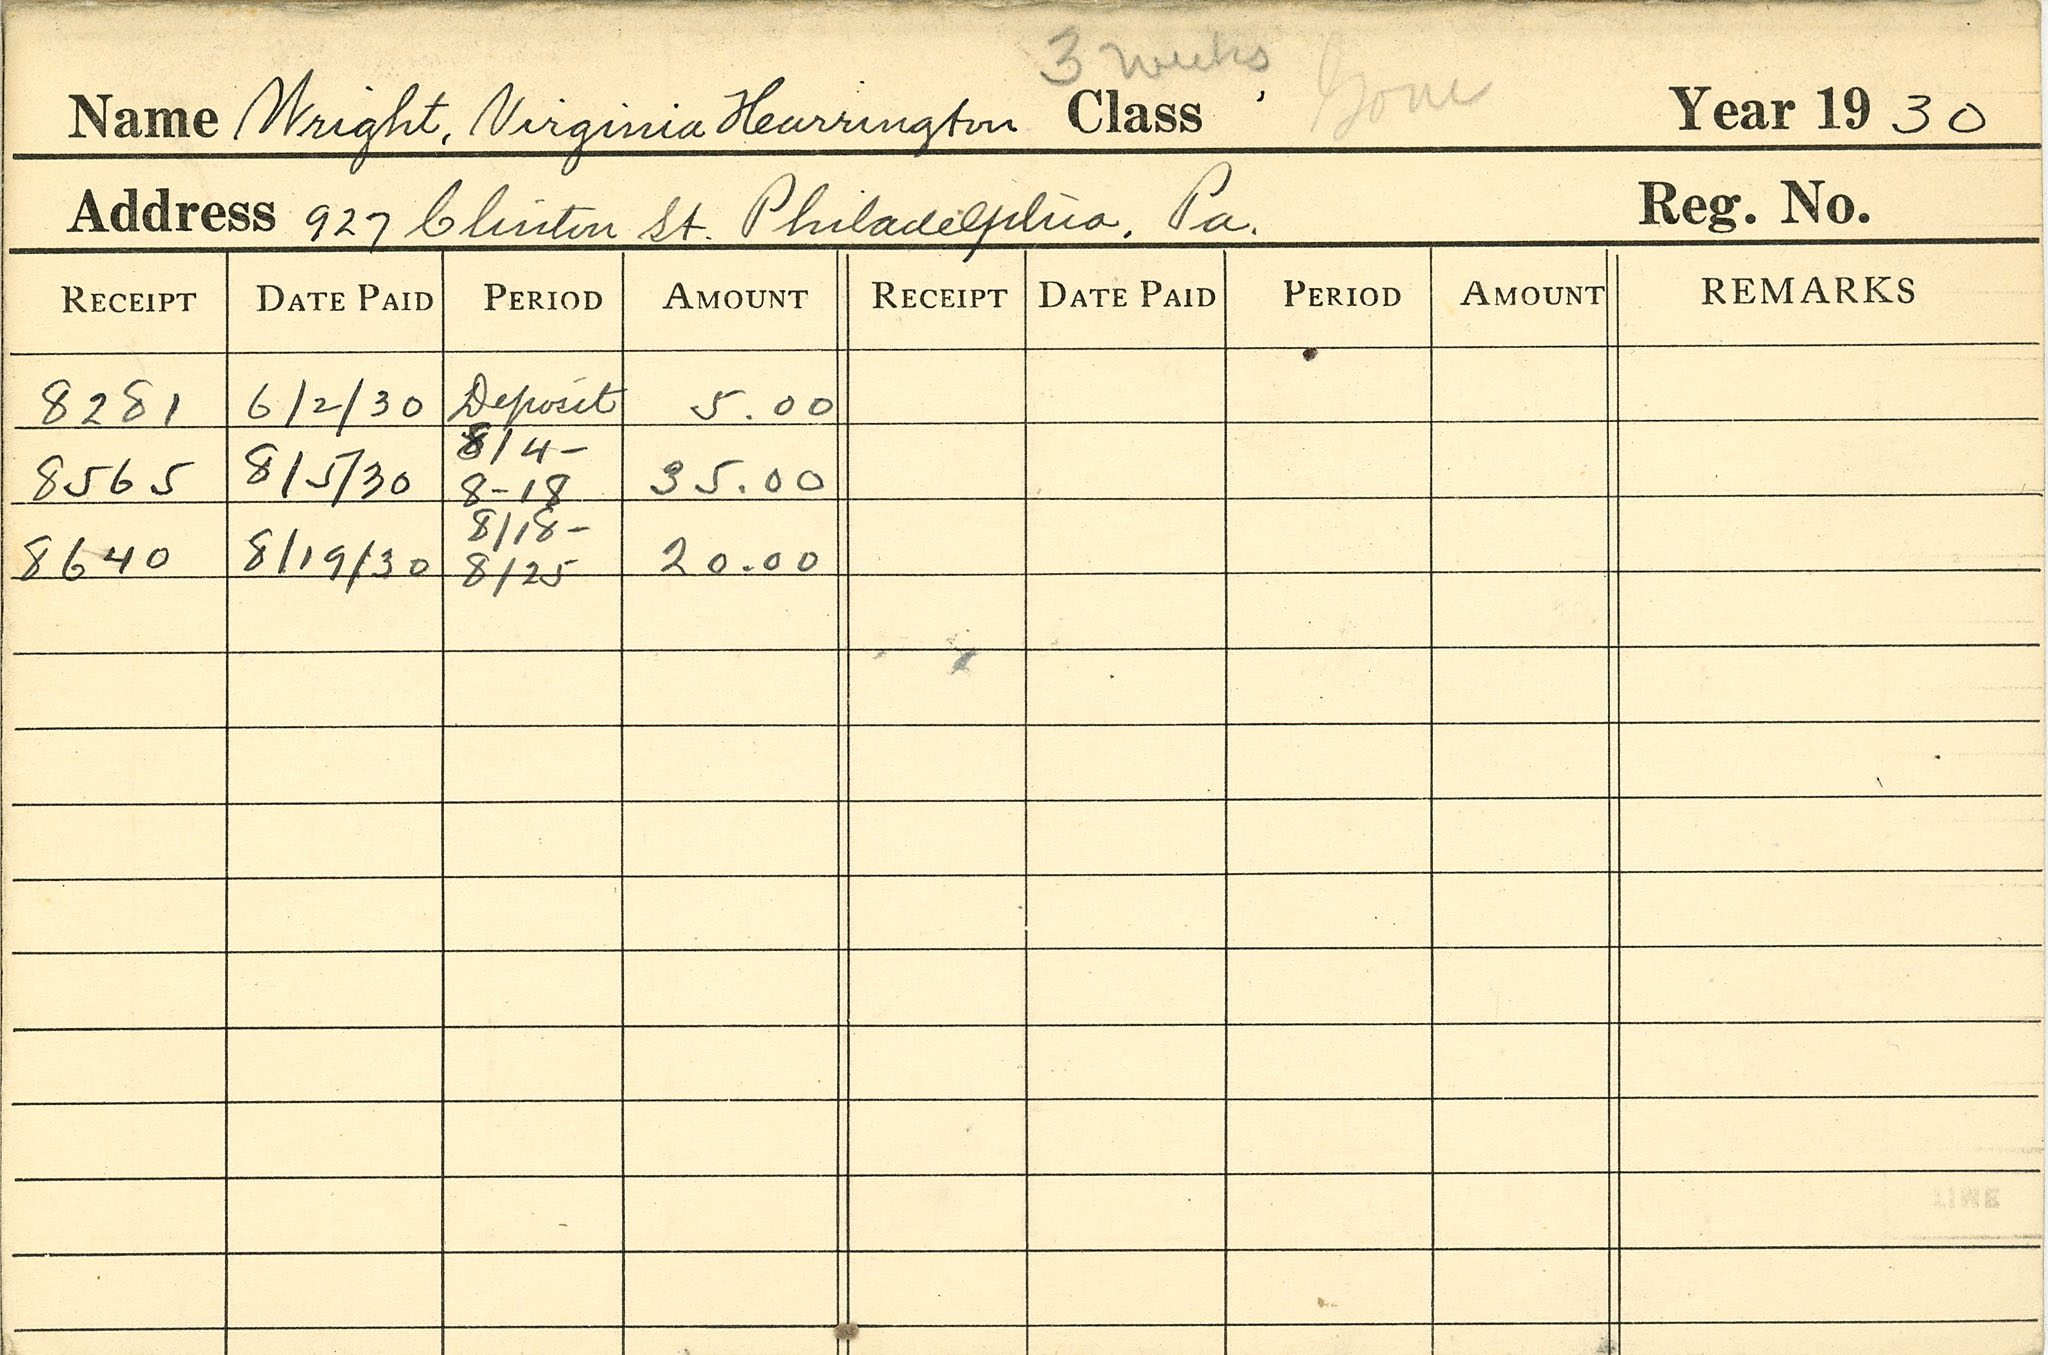 3 weeks Gone
Name Wright, Virginia Hearrington Class Year 19 30
Address 927 Clinton St. Philadelphia, Pa. Reg. No.
RECEIPT DATE PAID PERIOD AMOUNT RECEIPT DATE PAID PERIOD AMOUNT REMARKS
8281 6/2/30 Deposit 5.00
8/4-
8565 8/5/30 8-18 35.00
8/18-
8640 8/19/30 8/25 20.00